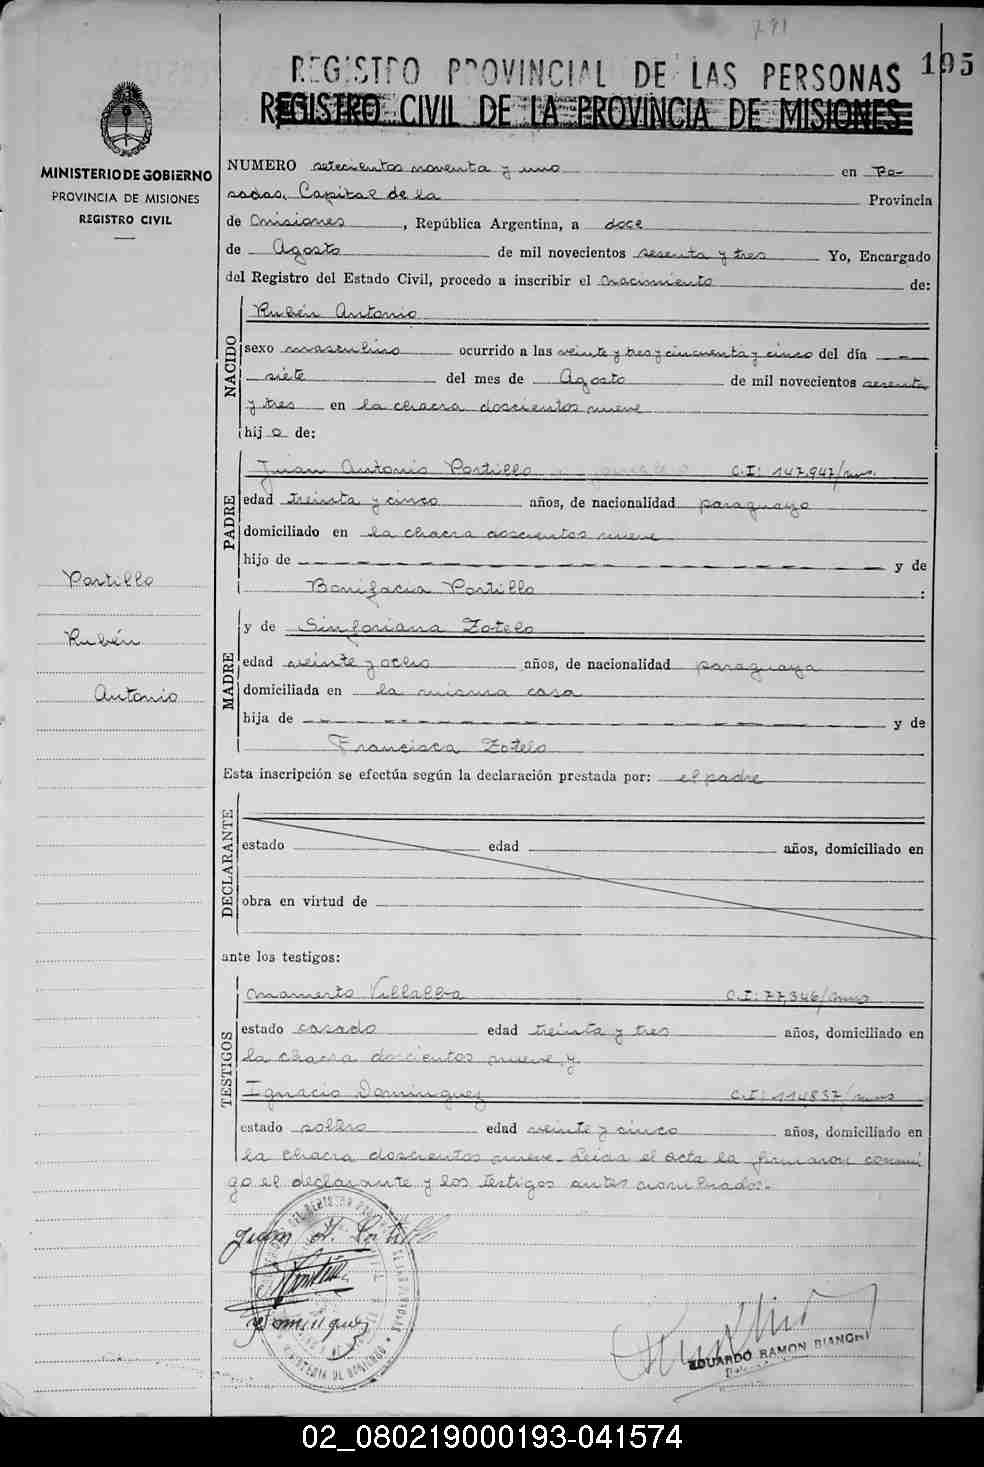 195
REGISTRO PROVINCIAL DE LAS PERSONAS
REGISTRO CIVIL DE LA PROVINCIA DE MISIONES
MINISTERIO DE GOBIERNO
PROVINCIA DE MISIONES
REGISTRO CIVIL
NUMERO setecientos noventa y uno en Po-
sadas, Capital de la Provincia
de Misiones, República Argentina, a doce
de Agosto de mil novecientos sesenta y tres Yo, Encargado
del Registro del Estado Civil, procedo a inscribir el nacimiento de:
NACIDO
Rubén Antonio
sexo masculino ocurrido a las veinte y tres y cincuenta y cinco del día
siete del mes de Agosto de mil novecientos sesenta
y tres en la chacra doscientos nueve
hijo de:
PADRE
Juan Antonio Portillo C.I: 147.947/mns.
edad treinta y cinco años, de nacionalidad paraguayo
domiciliado en la chacra doscientos nueve
hijo de y de
Bonifacia Portillo :
Portillo
Rubén
Antonio
MADRE
y de Sinforiana Zotelo
edad veinte y ocho años, de nacionalidad paraguaya
domiciliada en la misma casa
hija de y de
Francisca Zotelo
Esta inscripción se efectúa según la declaración prestada por: el padre
DECLARANTE
estado edad años, domiciliado en
obra en virtud de
ante los testigos:
TESTIGOS
Mamerto Villalba C.I: 77,346/mns
estado casado edad treinta y tres años, domiciliado en
la chacra doscientos nueve y
Ignacio Dominguez C.I: 114837/mns
estado soltero edad veinte y cinco años, domiciliado en
la chacra doscientos nueve. Leida el acta la firmaron conmi
go el declarante y los testigos antes nombrados.-
Juan A. Portillo
Dominguez
EDUARDO RAMON BIANCHI
02_080219000193-041574